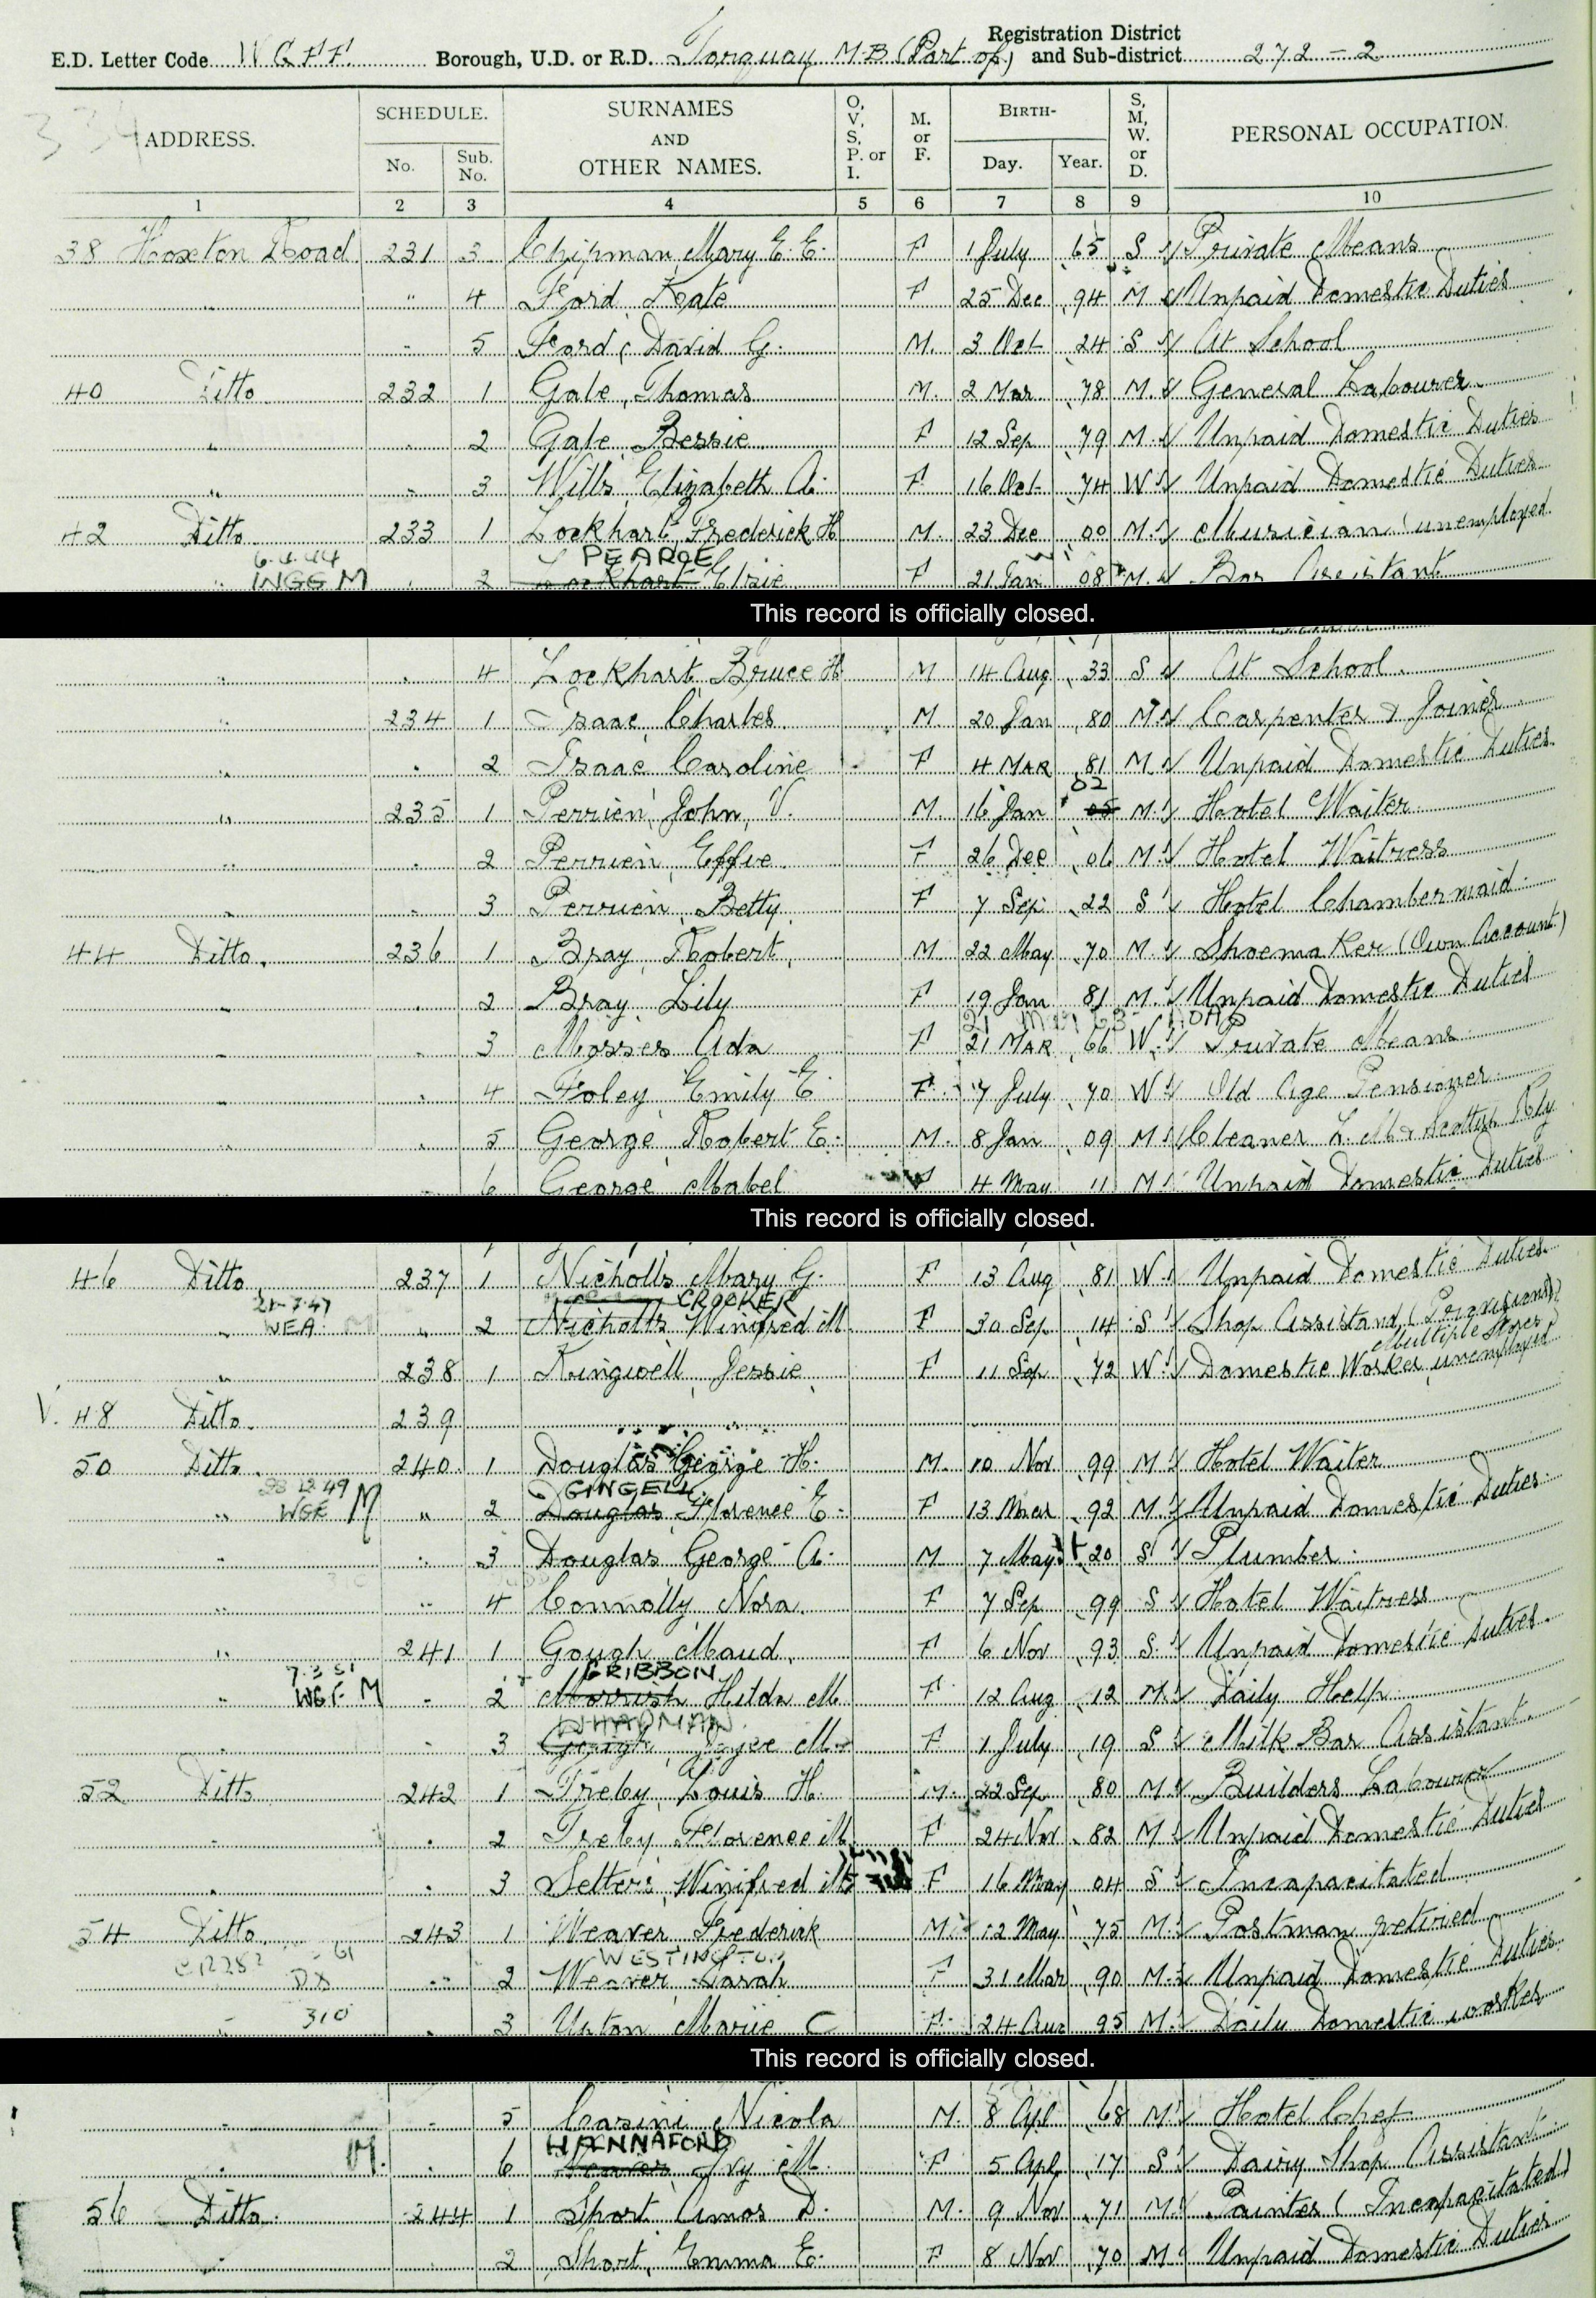 Registration District
E.D. Letter Code W G F F. Borough, U.D. or R.D. Torquay M.B (Part of) and Sub-district 272 - 2
334
ADDRESS. SCHEDULE. No. Sub. No. SURNAMES AND OTHER NAMES. O, V, S, P. or I. M. or F. BIRTH- Day. Year. S, M, W. or D. PERSONAL OCCUPATION.
1 2 3 4 5 6 7 8 9 10
38 Hoxton Road 231 3 Chipman, Mary E. E. F 1 July 65 S Private Means
" " 4 Ford, Kate F 25 Dec 94 M Unpaid Domestic Duties
" 5 Ford, David G. M. 3 Oct 24 S At School
40 Ditto 232 1 Gale, Thomas M. 2 Mar 78 M. General Labourer
" " 2 Gale, Bessie F 12 Sep 79 M. Unpaid Domestic Duties
" " 3 Wills, Elizabeth A. F 16 Oct 74 W Unpaid Domestic Duties
42 Ditto 233 1 Lockhart, Frederick H M. 23 Dec 00 M. Musician (unemployed
6.4.44 PEARCE
" INGG M " 2 Lockhart Elsie F 21 Jan 08 M. Bar Assistant
This record is officially closed.
" " 4 Lockhart, Bruce H M 14 Aug 33 S At School
" 234 1 Isaac, Charles M. 20 Jan 80 M. Carpenter & Joiner
" " 2 Isaac Caroline F 4 MAR 81 M. Unpaid Domestic Duties
02
" 235 1 Perrien, John, V. M. 16 Jan 05 M. Hotel Waiter
" " 2 Perrien, Effie F 26 Dec 06 M. Hotel Waitress
" " 3 Perrien, Betty F 7 Sep 22 S Hotel Chambermaid
44 Ditto. 236 1 Bray, Robert, M. 22 May 70 M. Shoemaker (Own Account.)
" " 2 Bray, Lily F 19 Jan 81 M. Unpaid Domestic Duties
" " 3 Mosses Ada F 21 MAR 66 W. Private Means
" " 4 Foley, Emily E F. 7 July 70 W Old Age Pensioner
" " 5 George Robert E. M. 8 Jan 09 M. Cleaner L. M & Scottish Rly
" " 6 George Mabel F 4 May 11 M. Unpaid Domestic Duties
This record is officially closed.
46 Ditto 237 1 Nicholls Mary G. F 13 Aug 81 W. Unpaid Domestic Duties
21-7-47 CROCKER
" WEA " 2 Nicholls Winifred M. F 30 Sep 14 S Shop Assistant (Provisions)
Multiple Stores
" 238 1 Kingwell Jessie F 11 Sep 72 W. Domestic Worker unemployed
V. 48 Ditto. 239
50 Ditto. 240 1 Douglas George H. M. 10 Nov 99 M. Hotel Waiter
12 49 GINGELL
" WGE M " 2 Douglas Florence E. F 13 Mar 92 M. Unpaid Domestic Duties
" " 3 Douglas George A. M. 7 May 20 S Plumber
" " 4 Connolly Nora. F 7 Sep 99 S Hotel Waitress
" 241 1 Gough Maud. F 6 Nov 93 S. Unpaid Domestic Duties
7.3 51 GRIBBON
" WGF M " 2 Morrish Hilda M F 12 Aug 12 M. Daily Help
WHADMAN
" " 3 Gough, Joyce M. F 1 July 19 S Milk Bar Assistant.
52 Ditto 242 1 Treby, Louis H. M. 22 Sep 80 M. Builders Labourer
" " 2 Treby, Florence M. F 24 Nov 82 M. Unpaid Domestic Duties
" " 3 Setters, Winifred M F 16 May 04 S Incapacitated
54 Ditto 243 1 Weaver Frederick M. 12 May 75 M. Postman retired
WESTINGTON
" DX " 2 Weaver Sarah F 31 Mar 90 M. Unpaid Domestic Duties
" 310 " 3 Upton Marie C F. 24 Aug 95 M. Daily Domestic worker
This record is officially closed.
" " 5 Casini Nicola M. 8 Apl 68 M. Hotel Chef
HANNAFORD
" M. " 6 Weaver Ivy M. F 5 Apl 17 S Dairy Shop Assistant
56 Ditto. 244 1 Short Amos D. M. 9 Nov 71 M. Painter (Incapacitated)
" " 2 Short, Emma E. F 8 Nov 70 M. Unpaid Domestic Duties